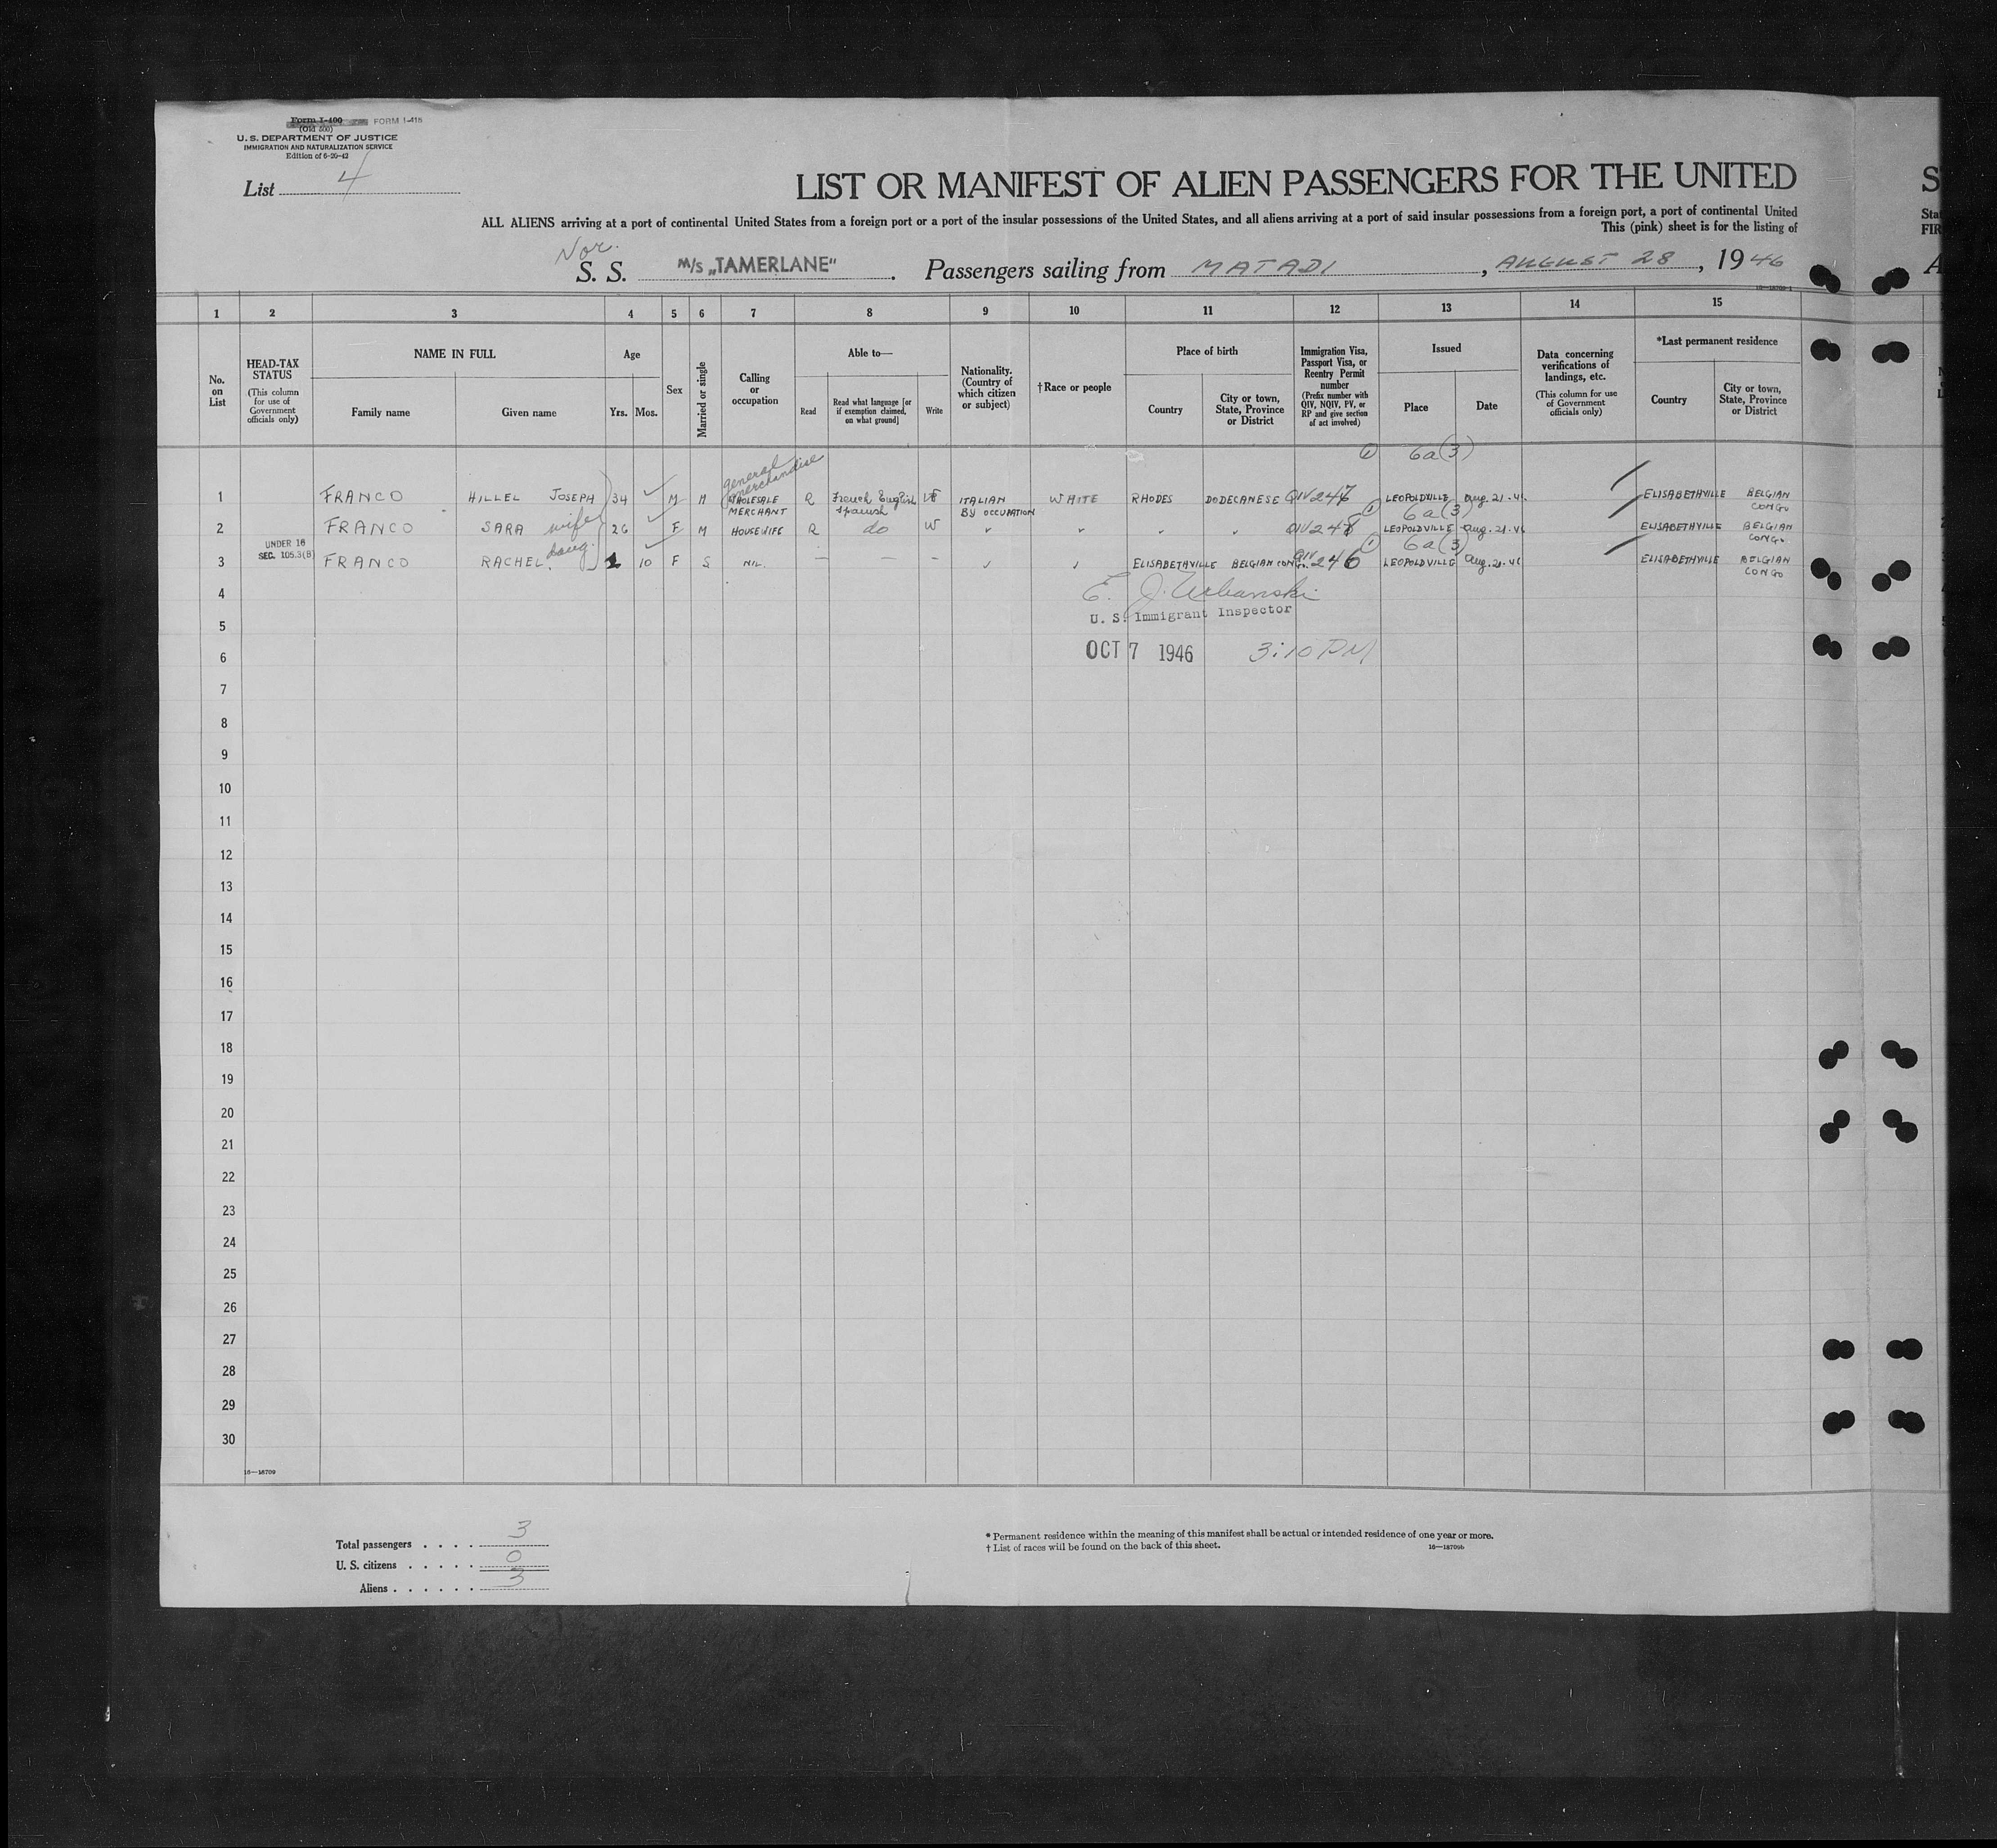 Form I-400 FORM I-415
(Old 500)
U. S. DEPARTMENT OF JUSTICE
IMMIGRATION AND NATURALIZATION SERVICE
Edition of 6-20-42
List 4
LIST OR MANIFEST OF ALIEN PASSENGERS FOR THE UNITED S
ALL ALIENS arriving at a port of continental United States from a foreign port or a port of the insular possessions of the United States, and all aliens arriving at a port of said insular possessions from a foreign port, a port of continental United Sta
This (pink) sheet is for the listing of FIR
Nor.
S. S. M/S „TAMERLANE" . Passengers sailing from MATADI , AUGUST 28 , 19 46 A
1 2 3 4 5 6 7 8 9 10 11 12 13 14 15
No. on List
HEAD-TAX STATUS
(This column for use of Government officials only)
NAME IN FULL
Family name Given name
Age
Yrs. Mos.
Sex
Married or single
Calling or occupation
Able to—
Read Read what language [or if exemption claimed, on what ground] Write
Nationality. (Country of which citizen or subject)
†Race or people
Place of birth
Country City or town, State, Province or District
Immigration Visa, Passport Visa, or Reentry Permit number
(Prefix number with QIV, NQIV, PV, or RP and give section of act involved)
Issued
Place Date
Data concerning verifications of landings, etc.
(This column for use of Government officials only)
*Last permanent residence
Country City or town, State, Province or District
general merchandise
① 6a(3)
1 FRANCO HILLEL JOSEPH 34 M M WHOLESALE MERCHANT R French English Spanish W ITALIAN BY OCCUPATION WHITE RHODES DODECANESE QIV 247 LEOPOLDVILLE Aug. 21-46 ELISABETHVILLE BELGIAN CONGO
① 6a(3)
2 FRANCO SARA wife 26 F M HOUSEWIFE R do W " " " " QIV 248 LEOPOLDVILLE Aug. 21-46 ELISABETHVILLE BELGIAN CONGO
UNDER 16
SEC. 105.3(B)
① 6a(3)
3 FRANCO RACHEL. daug. 10 F S NIL. — — — " " ELISABETHVILLE BELGIAN CONGO. QIV 246 LEOPOLDVILLE Aug. 21-46 ELISABETHVILLE BELGIAN CONGO
4 E. J. Urbanski
5 U. S. Immigrant Inspector
6 OCT 7 1946 3:10 PM
7
8
9
10
11
12
13
14
15
16
17
18
19
20
21
22
23
24
25
26
27
28
29
30
16—18709
Total passengers . . . . 3
U. S. citizens . . . . . 0
Aliens . . . . . . 3
* Permanent residence within the meaning of this manifest shall be actual or intended residence of one year or more.
† List of races will be found on the back of this sheet.